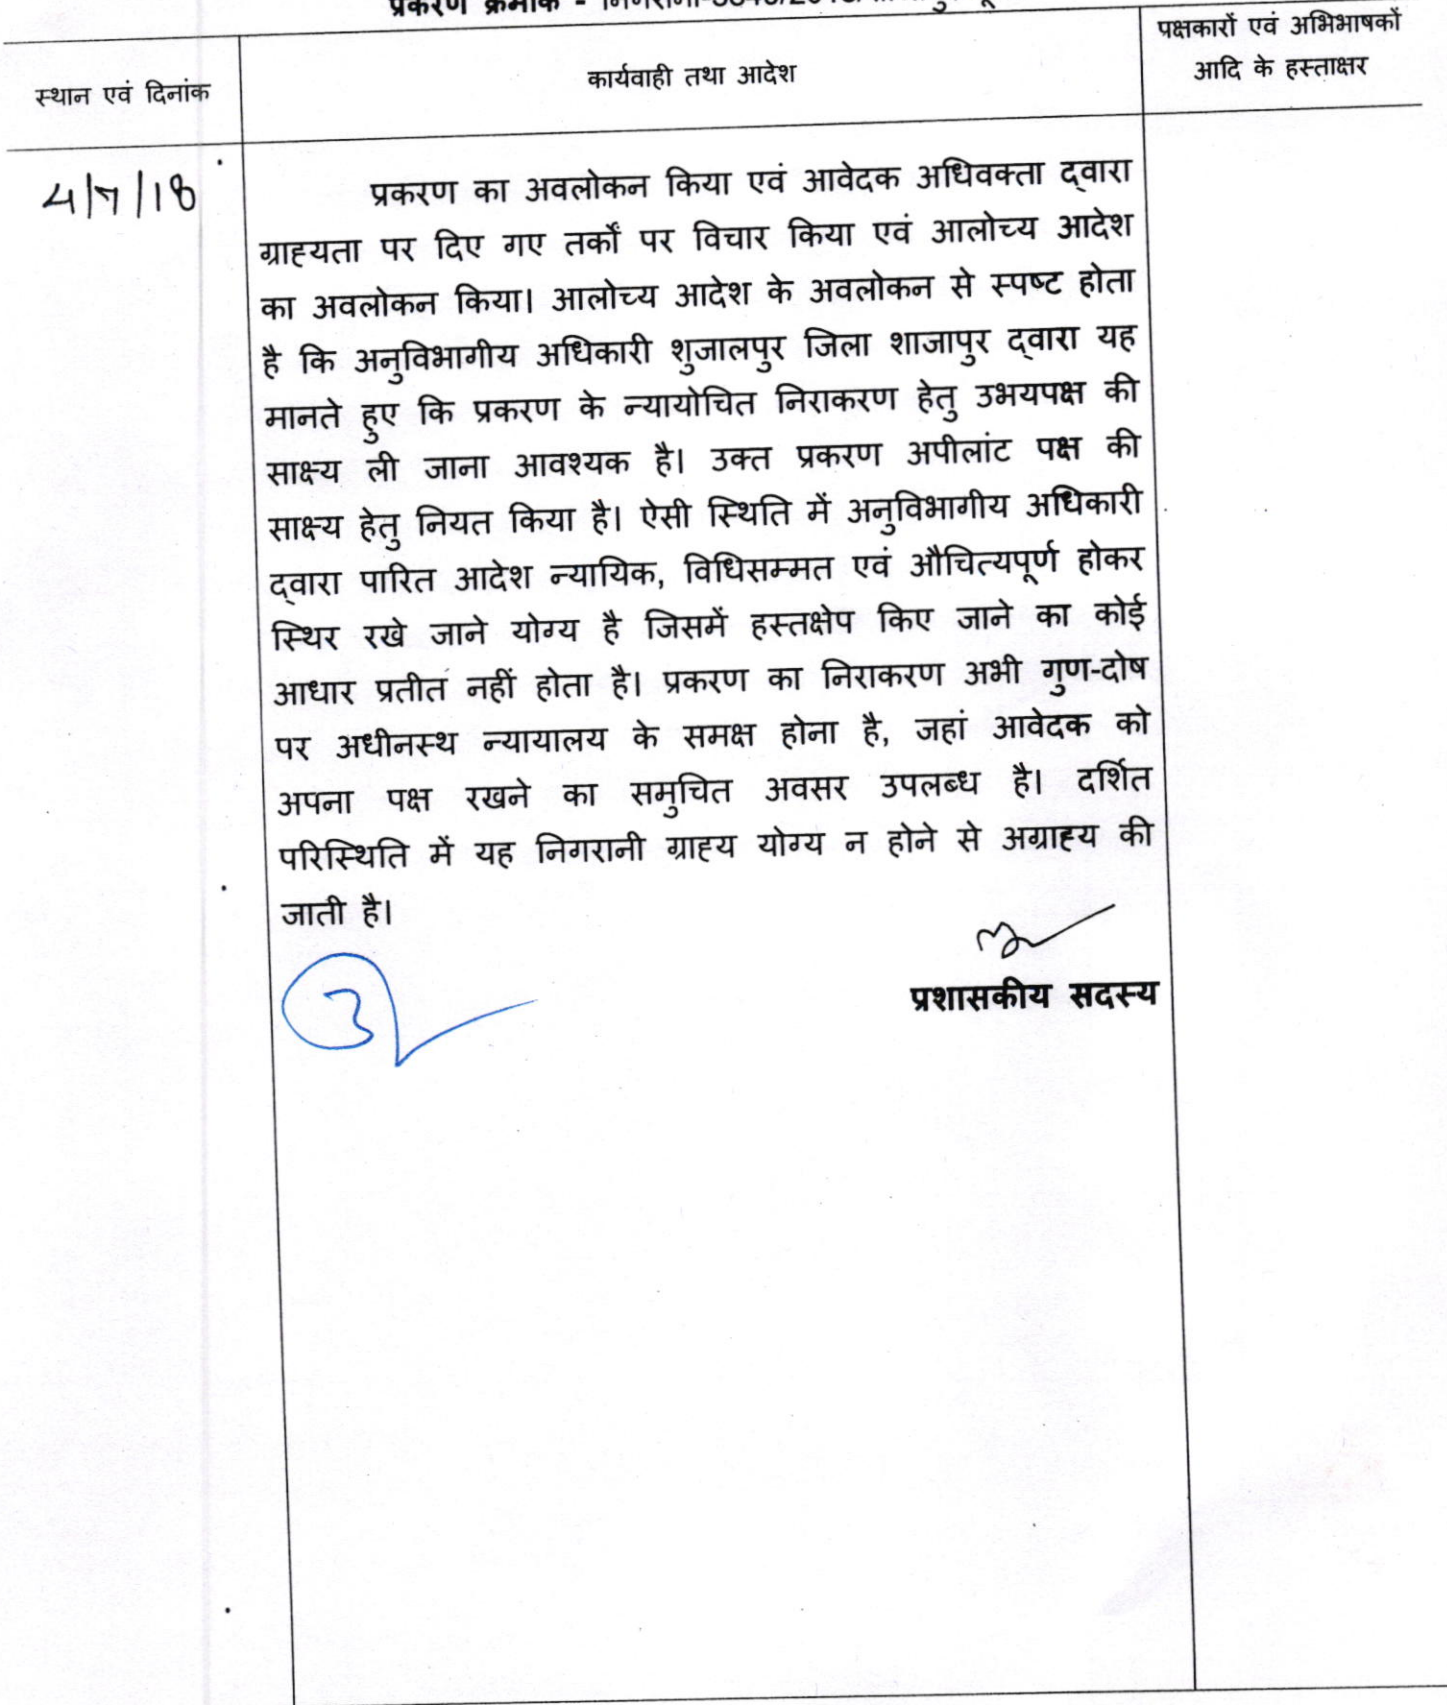 प्रकरण क्रमांक -
पक्षकारों एवं अभिभाषकों
आदि के हस्ताक्षर
स्थान एवं दिनांक
कार्यवाही तथा आदेश
4/7/18
प्रकरण का अवलोकन किया एवं आवेदक अधिवक्ता द्वारा
ग्राह्यता पर दिए गए तर्कों पर विचार किया एवं आलोच्य आदेश
का अवलोकन किया। आलोच्य आदेश के अवलोकन से स्पष्ट होता
है कि अनुविभागीय अधिकारी शुजालपुर जिला शाजापुर द्वारा यह
मानते हुए कि प्रकरण के न्यायोचित निराकरण हेतु उभयपक्ष की
साक्ष्य ली जाना आवश्यक है। उक्त प्रकरण अपीलांट पक्ष की
साक्ष्य हेतु नियत किया है। ऐसी स्थिति में अनुविभागीय अधिकारी
द्वारा पारित आदेश न्यायिक, विधिसम्मत एवं औचित्यपूर्ण होकर
स्थिर रखे जाने योग्य है जिसमें हस्तक्षेप किए जाने का कोई
आधार प्रतीत नहीं होता है। प्रकरण का निराकरण अभी गुण-दोष
पर अधीनस्थ न्यायालय के समक्ष होना है, जहां आवेदक को
अपना पक्ष रखने का समुचित अवसर उपलब्ध है। दर्शित
परिस्थिति में यह निगरानी ग्राह्य योग्य न होने से अग्राह्य की
जाती है।
प्रशासकीय सदस्य